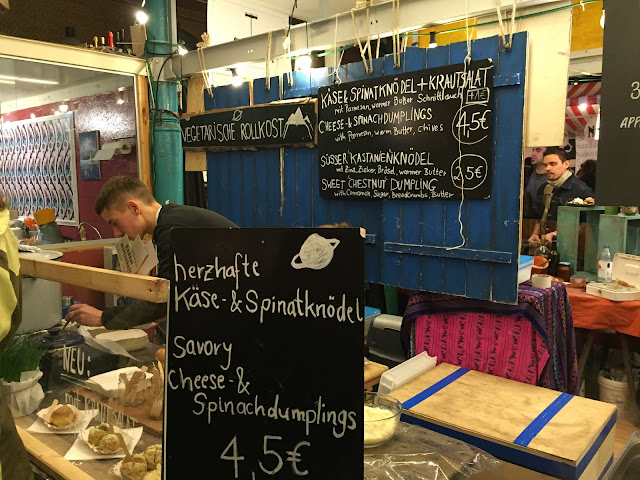 VEGETARISCHE ROLLKOST
KÄSE & SPINATKNÖDEL + KRAUTSALAT
mit Parmesan, warmer Butter Schnittlauch + 1€
CHEESE- & SPINACHDUMPLINGS
with Parmesan, warm Butter, chives
4,5€
SÜSSER KASTANIENKNÖDEL
mit Zimt, Zucker, Brösel, warmer Butter
SWEET CHESTNUT DUMPLING
with Cinnamon, Sugar, Breadcrumbs, Butter
2,5€
herzhafte
Käse- & Spinatknödel
Savory
Cheese- &
Spinachdumplings
4,5€
NEU:
3
APP